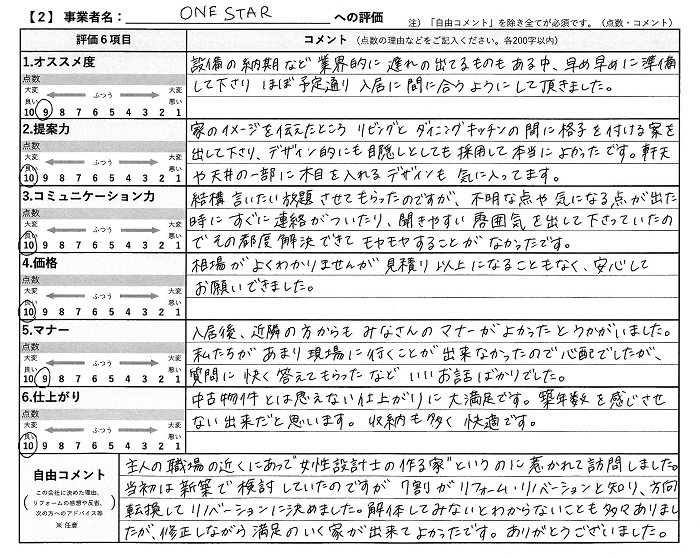 【2】事業者名： ONE STAR への評価
注）「自由コメント」を除き全てが必須です。（点数・コメント）
評価6項目 コメント（点数の理由などをご記入ください。各200字以内）
1.オススメ度
点数
大変良い ふつう 大変悪い
10 9 8 7 6 5 4 3 2 1
設備の納期など業界的に遅れの出てるものもある中、早め早めに準備
して下さり ほぼ予定通り入居に間に合うようにして頂きました。
2.提案力
点数
大変良い ふつう 大変悪い
10 9 8 7 6 5 4 3 2 1
家のイメージを伝えたところ リビングとダイニングキッチンの間に格子を付ける案を
出して下さり、デザイン的にも目隠しとしても採用して本当によかったです。軒天
や天井の一部に木目を入れるデザインも気に入ってます。
3.コミュニケーション力
点数
大変良い ふつう 大変悪い
10 9 8 7 6 5 4 3 2 1
結構言いたい放題させてもらったのですが、不明な点や気になる点が出た
時にすぐに連絡がついたり、聞きやすい雰囲気を出して下さっていたの
でその都度解決できてモヤモヤすることがなかったです。
4.価格
点数
大変良い ふつう 大変悪い
10 9 8 7 6 5 4 3 2 1
相場がよくわかりませんが見積り以上になることもなく、安心して
お願いできました。
5.マナー
点数
大変良い ふつう 大変悪い
10 9 8 7 6 5 4 3 2 1
入居後、近隣の方からもみなさんのマナーがよかったとうかがいました。
私たちがあまり現場に行くことが出来なかったので心配でしたが、
質問に快く答えてもらったなどいいお話ばかりでした。
6.仕上がり
点数
大変良い ふつう 大変悪い
10 9 8 7 6 5 4 3 2 1
中古物件とは思えない仕上がりに大満足です。築年数を感じさせ
ない出来だと思います。収納も多く快適です。
自由コメント
この会社に決めた理由、
リフォームの感想や反省、
次の方へのアドバイス等
※ 任意
主人の職場の近くにあって"女性設計士の作る家"というのに惹かれて訪問しました。
当初は新築で検討していたのですが 7割がリフォーム・リノベーションと知り、方向
転換してリノベーションに決めました。解体してみないとわからないことも多々ありまし
たが、修正しながら満足のいく家が出来てよかったです。ありがとうございました。